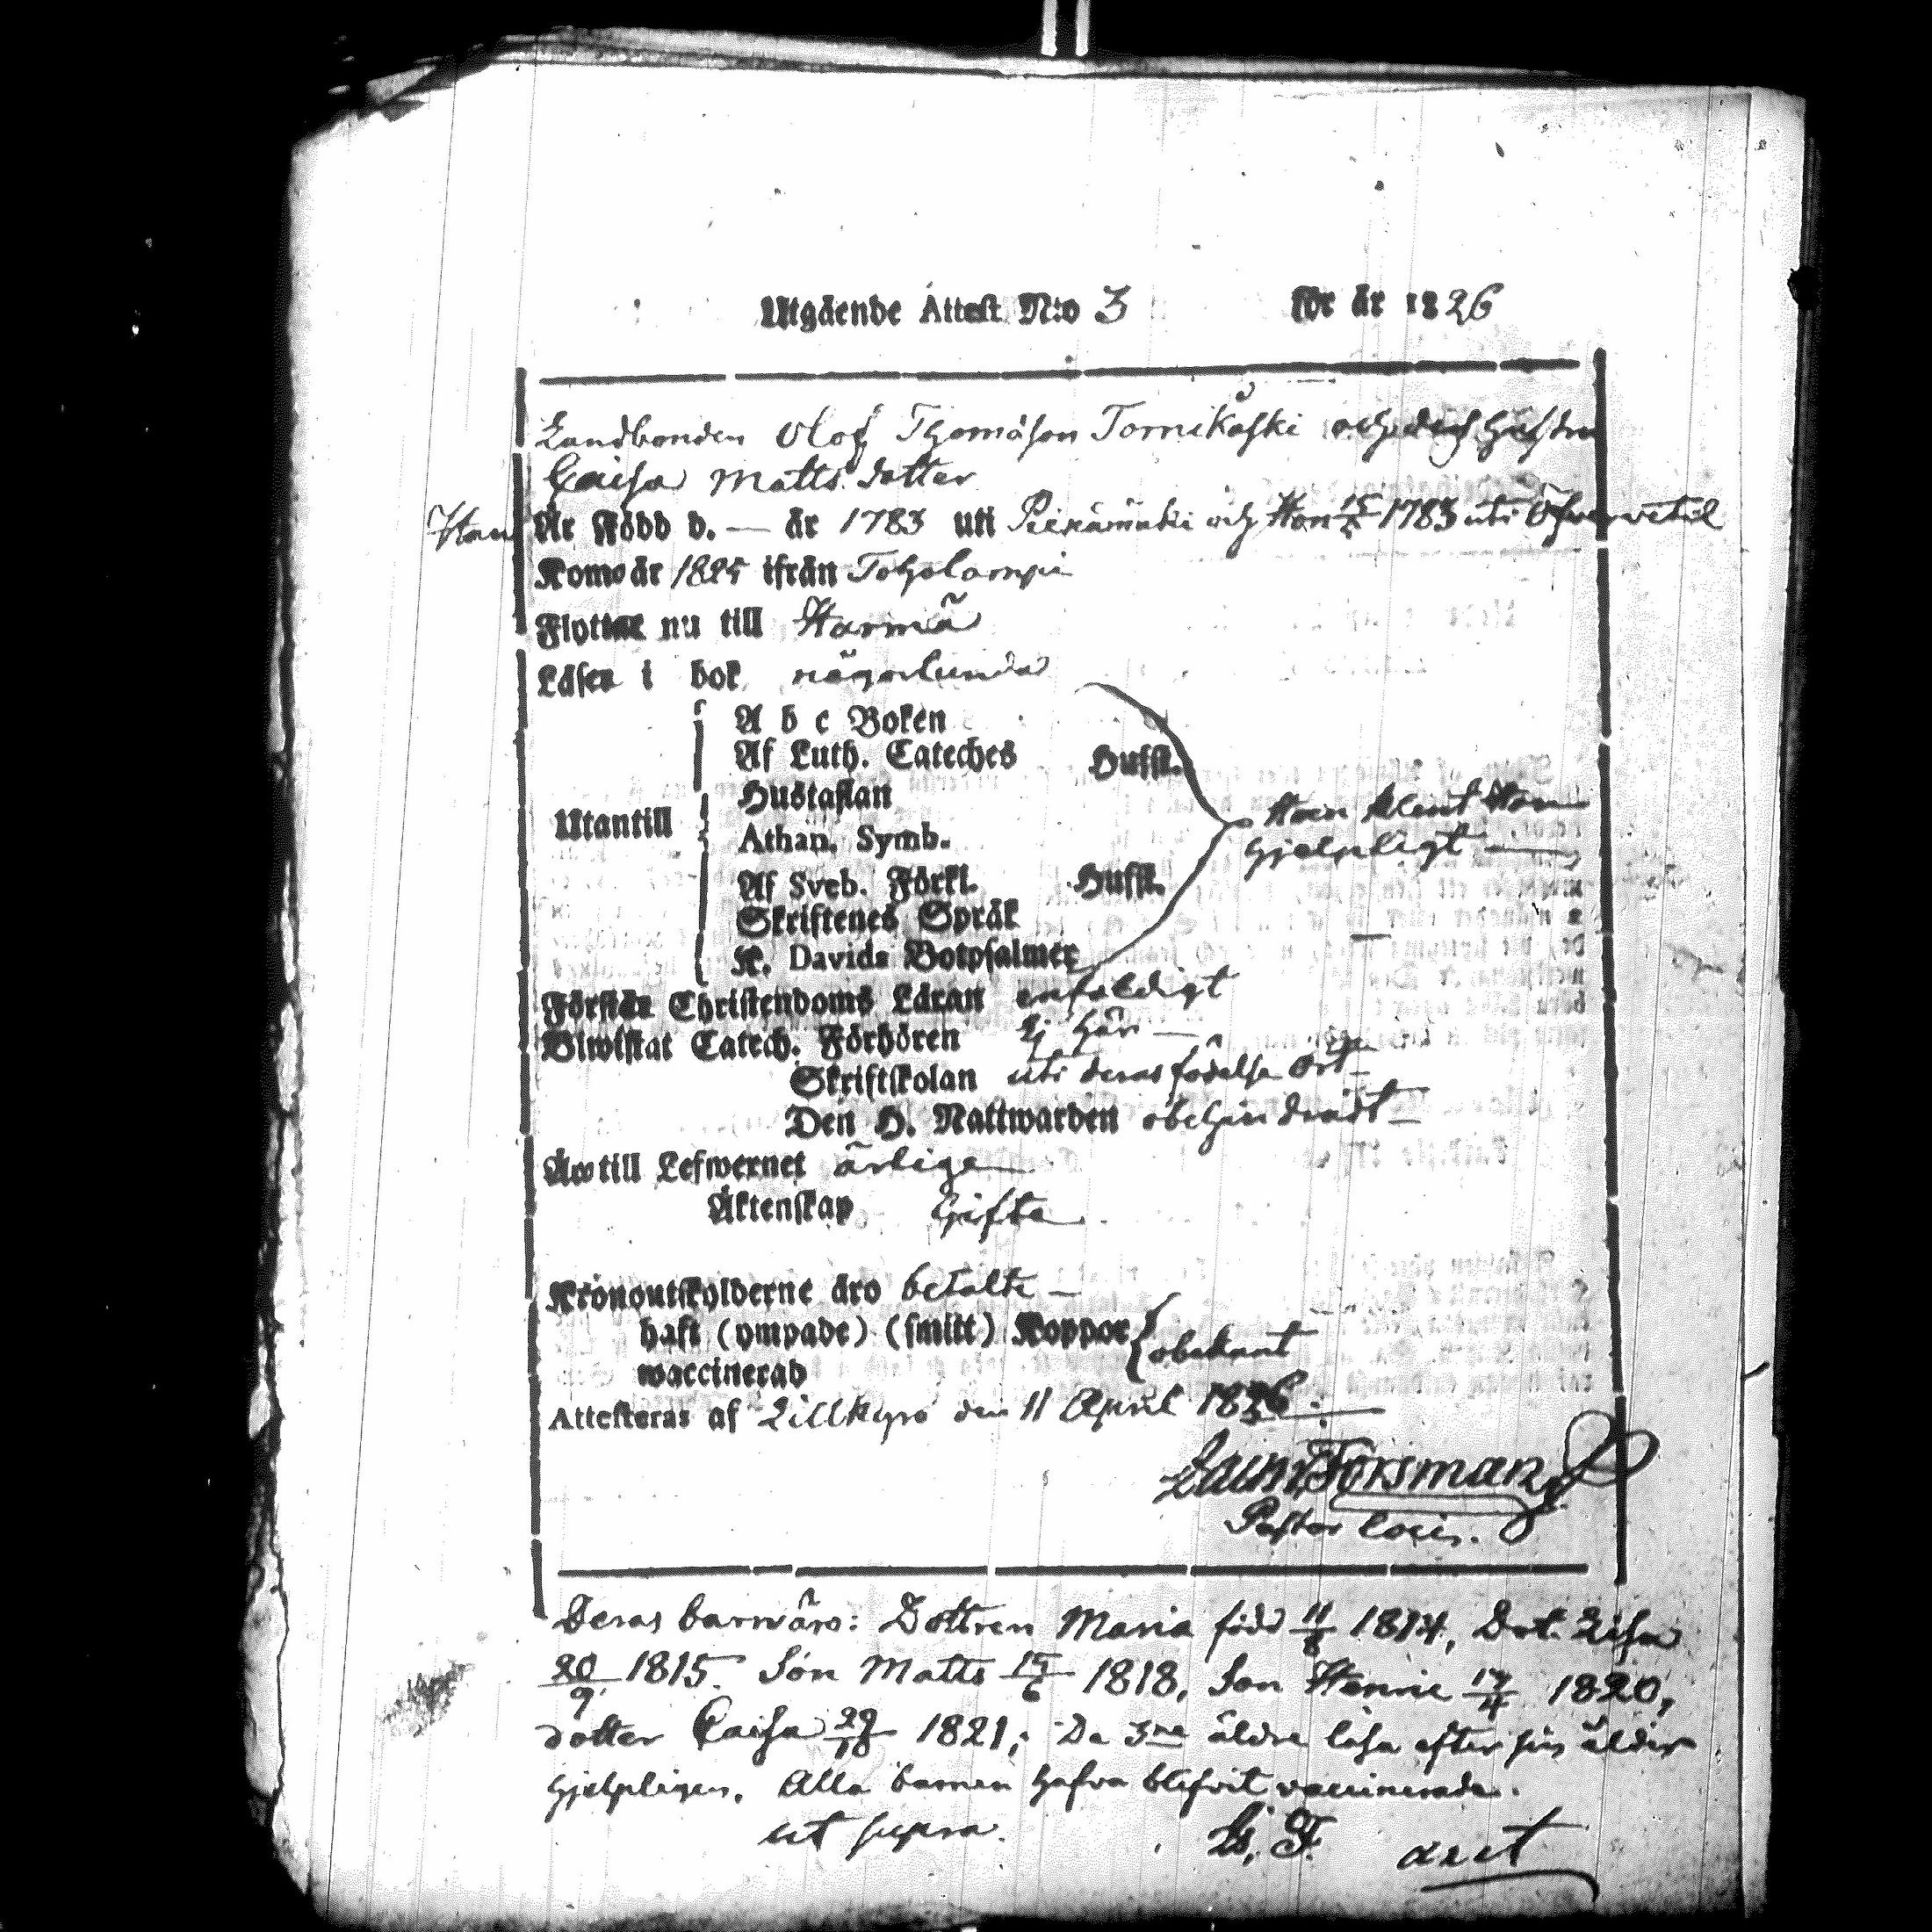 Utgående Attest N:o 3 för år 1826
Landbonden Olof Thomasson Tornikoski och dess hustru
Caisa Mattsdotter
Han Är Född d. — år 1783 uti Piexämäki och Hon 15/5 1783 uti Öfvervetil
Kom år 1825 ifrån Toholampi
Flyttar nu till Härmä
Läser i bok någorlunda
A b c Boken
Af Luth. Cateches Husst.
Hustaflan
Utantill
Athan. Symb.
Han klent Hon
hjelpligt —
Af Sveb. Förkl. Husst.
Skriftenes Språk
K. Davids Botpsalmer
Förstår Christendoms Läran enfaldigt
Biwistat Catech. Förhören Ej här —
Skriftskolan uti deras födelse Ort —
Den H. Nattwarden obehindradt —
Äro till Lefwernet ärliga
Äktenskap Gifta
Kronoutskylderne äro betalte —
haft (ympade) (smitt) Koppor
waccinerad
obekant
Attesteras af Lillkyro den 11 April 1826.
Forsman
Pastor loci.
Deras barn äro: Dottren Maria född 11/8 1814, Dot. Lisa
20/9 1815. Son Matts 15/6 1818, Son Henric 17/4 1820,
dotter Caisa 29/10 1821; De 3ne äldre läsa efter sin ålder
hjelpligen. Alla barnen hafva blifvit vaccinerade.
ut supra. F.